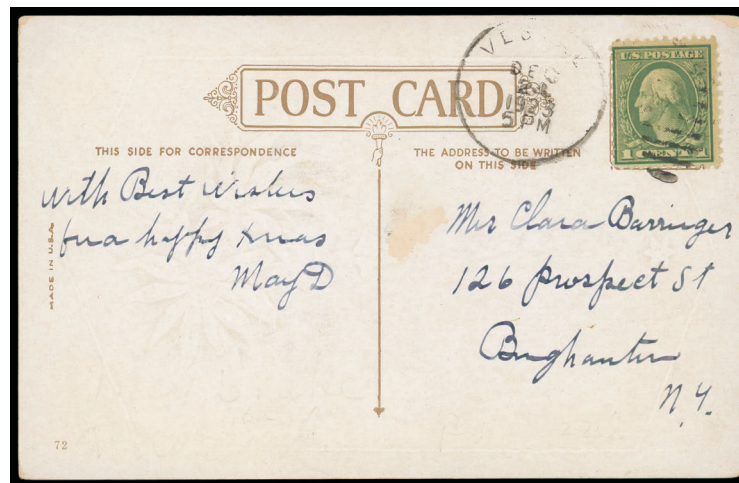 POST CARD
VESTAL
DEC
1923
5 PM
U.S. POSTAGE
1
THIS SIDE FOR CORRESPONDENCE
THE ADDRESS TO BE WRITTEN
ON THIS SIDE
with Best wishes
for a happy Xmas
May D
MADE IN U.S.A.
Mrs Clara Barringer
126 Prospect St
Binghamton
N.Y.
72